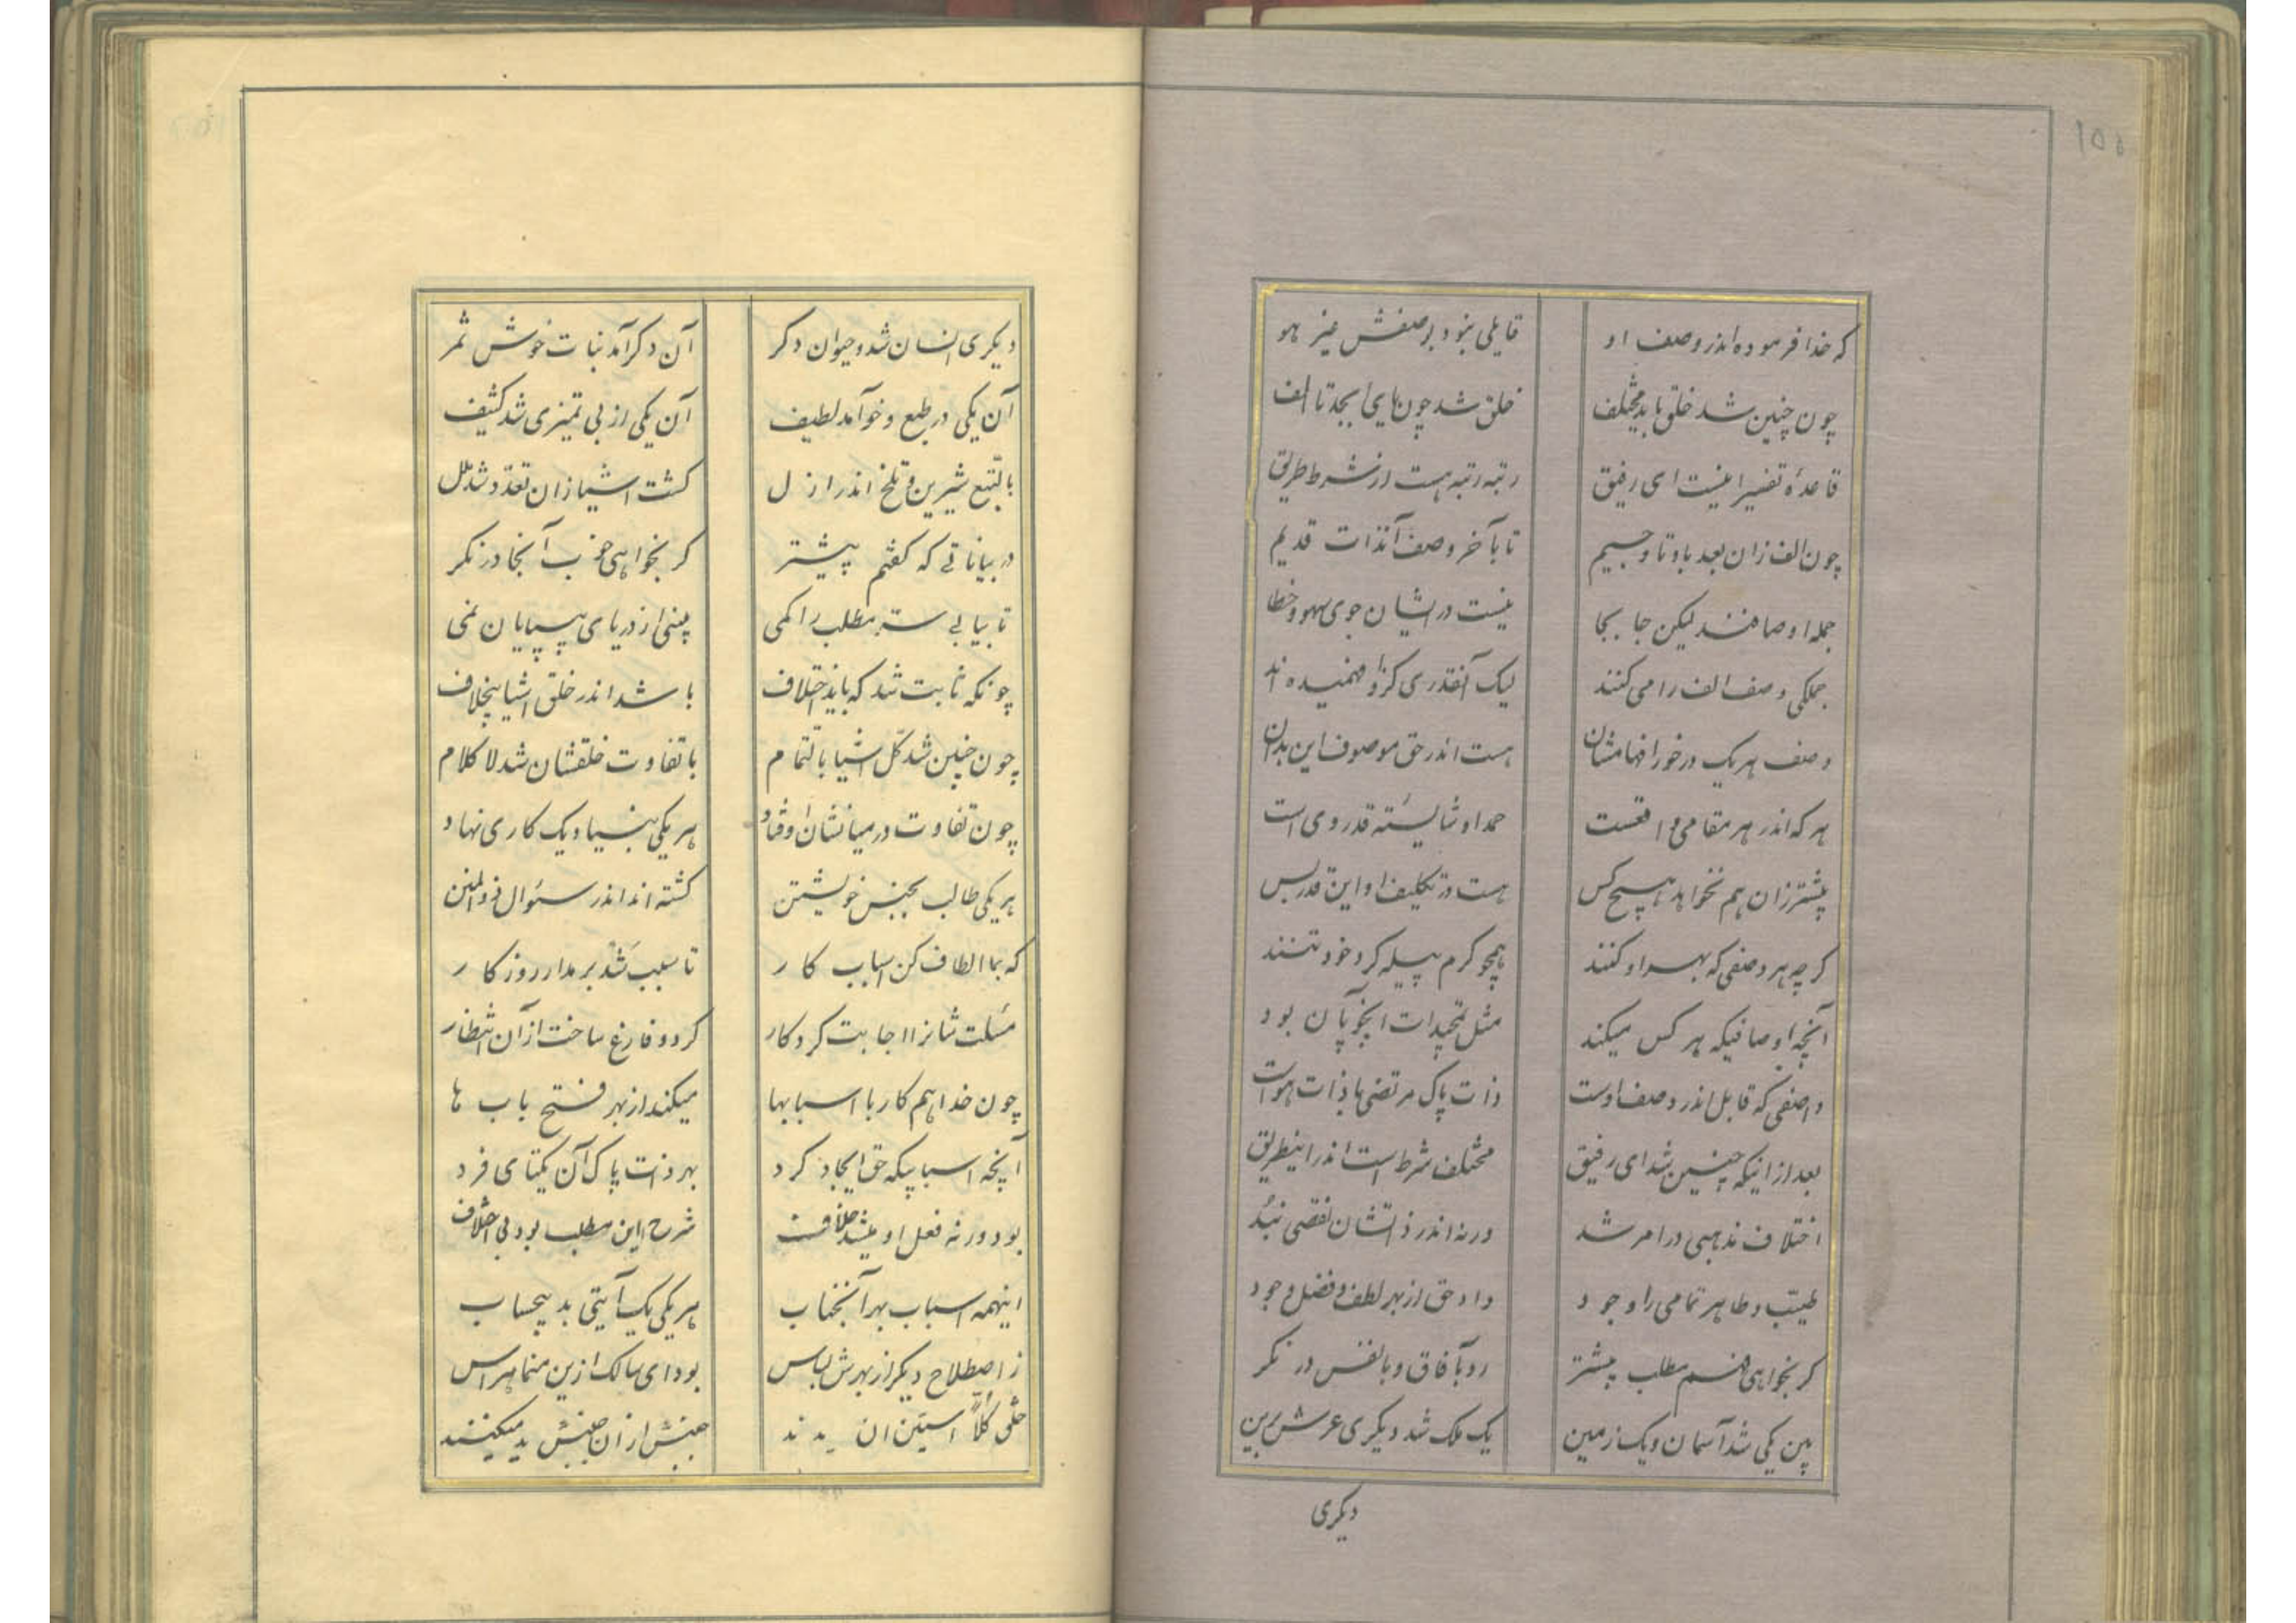 که خدا فرموده اندر وصف او قایلی نبود بوصفش غیر هو
چون چنین شد خلق باید مختلف خلق شد چون یای ابجد تا الف
قاعدهٔ تفسیر اینست ای رفیق رتبه رتبه هست از شرط طریق
چون الف زان بعد با و تا و جیم تا بآخر وصف آنذات قدیم
جمله اوصافند لیکن جا بجا نیست در ایشان جوی سهو و خطا
جملکی وصف الف را می کنند لیک آنقدری کز او فهمیده اند
وصف هر یک در خور افهامشان هست اندر حق موصوف این بدان
هر که اندر هر مقامی واقعست حمد او شایسته قدر وی است
پیشتر زان هم نخواهد هیچ کس هست در تکلیف او این قدر بس
کر چه هر وصفی که بهر او کنند همچو کرم پیله کرد خود تنند
آنچه اوصافیکه هر کس میکند مثل تمجیدات انچوپان بود
واصفی که قابل اندر وصف اوست ذات پاک مرتضی با ذات هوست
بعد از انیکه چنین شد ای رفیق مختلف شرط است اندر اینطریق
اختلاف مذهبی در امر شد ورنه اندر ذاتشان نقصی نبد
طیب و طاهر تمامی را وجود داد حق از بهر لطف و فضل وجود
کر بخواهی فهم مطلب پیشتر رو بآفاق و بانفس در نکر
بین یکی شد آسمان و یک زمین یک ملک شد دیکری عرش برین
دیکری
دیکری انسان شد و حیوان دکر آن دکر آمد نبات خوش ثمر
آن یکی در طبع و خو آمد لطیف آن یکی از بی تمیزی شد کثیف
بالتبع شیرین و تلخ اندر ازل کشت اشیا زان تعدد شد علل
در بیاناتی که کفتم پیشتر کر بخواهی خوب آنجا در نکر
تا بیابی ستر مطلب را کمی بینی از دریای بیپایان نمی
چونکه ثابت شد که باید اختلاف باشد اندر خلق اشیا بیخلاف
چون چنین شد کل اشیا بالتمام با تفاوت خلقشان شد لا کلام
چون تفاوت در میانشان اوفتاد هر یکی بنیاد یک کاری نهاد
هر یکی طالب بجنس خویشتن کشته اند اندر سئوال ذوالمنن
که بما الطاف کن اسباب کار تا سبب شد بر مدار روزکار
مسئلت شانرا اجابت کردکار کرد و فارغ ساخت از آن انتظار
چون خدا هم کار با اسبابها میکند از بهر فتح باب ها
آنچه اسبابیکه حق ایجاد کرد بهر ذات پاک آن یکتای فرد
بود ورنه فعل او شرح این مطلب بود بی اختلاف
اینهمه اسباب بهر آنجناب هر یکی یک آیتی بد بیحساب
ز اصطلاح دیکر از بهرش لباس بود ای سالک ازین منما هراس
خلق کلاً جنبش از ان جنبش ید میکنند